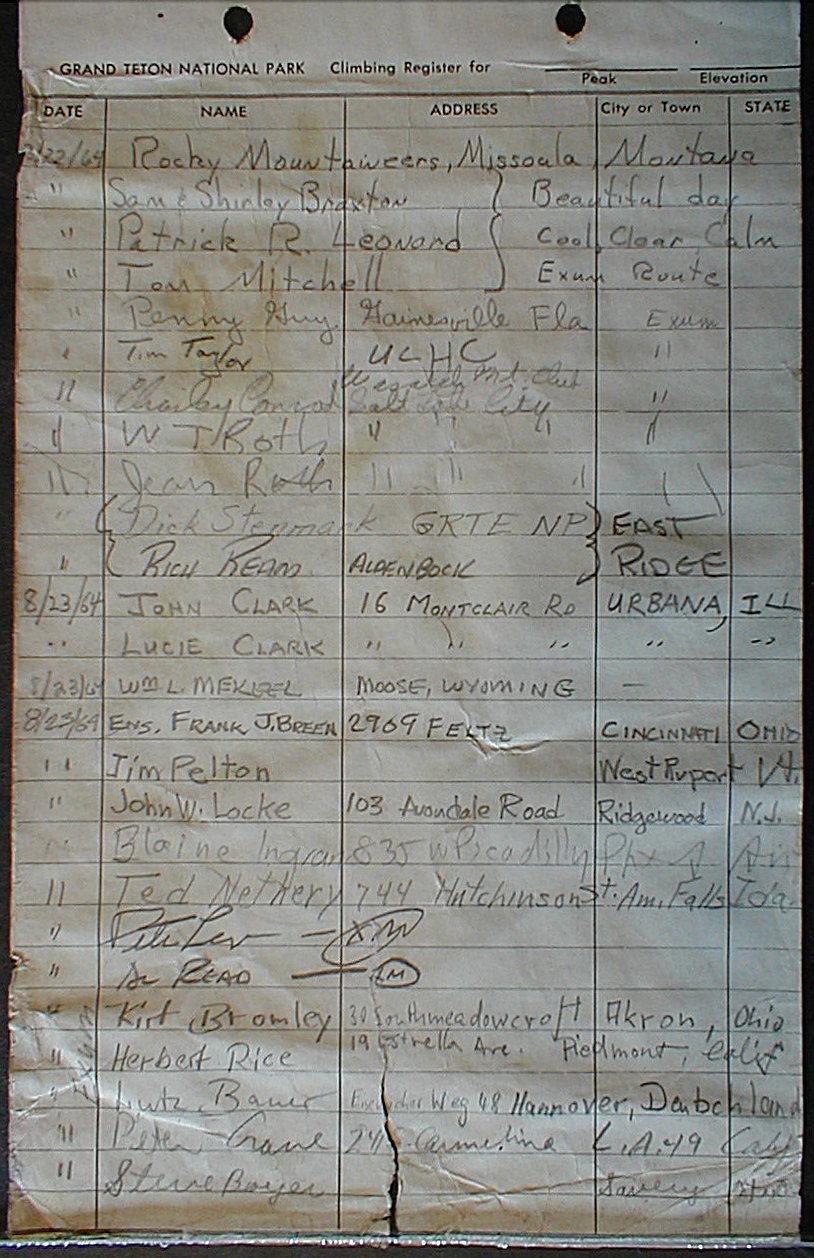 GRAND TETON NATIONAL PARK Climbing Register for
Peak Elevation
DATE NAME ADDRESS City or Town STATE
8/22/64 Rocky Mountaineers, Missoula, Montana
" Sam & Shirley Braxton } Beautiful day
" Patrick R. Leonard Cool, Clear Calm
" Tom Mitchell Exum Route
" Penny Guy Gainesville Fla Exum
" Tim Taylor ULHC "
" Charley Conrod Wasatch Mt. Club
Salt Lake City "
" W T Roth " " " "
" Jean Roth " " "
" (Dick Stenmark GRTE NP) EAST
" RICH REAM ALPENBOCK RIDGE
8/23/64 JOHN CLARK 16 MONTCLAIR RD URBANA, ILL
" LUCIE CLARK " " " " "
8/23/64 WM L. MEKISEL MOOSE, WYOMING —
8/23/64 ENS. FRANK J. BREEN 2969 FELTZ CINCINNATI OHIO
" Jim Pelton West Rupert Vt.
" John W. Locke 103 Avondale Road Ridgewood N.J.
" Blaine Ingram 835 W Picadilly Phx
" Ted Nethery 744 Hutchinson St. Am. Falls Ida.
" Pete Lev —
" AL READ —
" Kirt Bromley 30 Southmeadowcroft Akron, Ohio
" Herbert Rice 19 Estrella Ave. Piedmont, Calif
" Lutz Bauer Weg 48 Hannover, Deutschland
" Peter Crane L.A. 49 Calif
" Steve Boyer